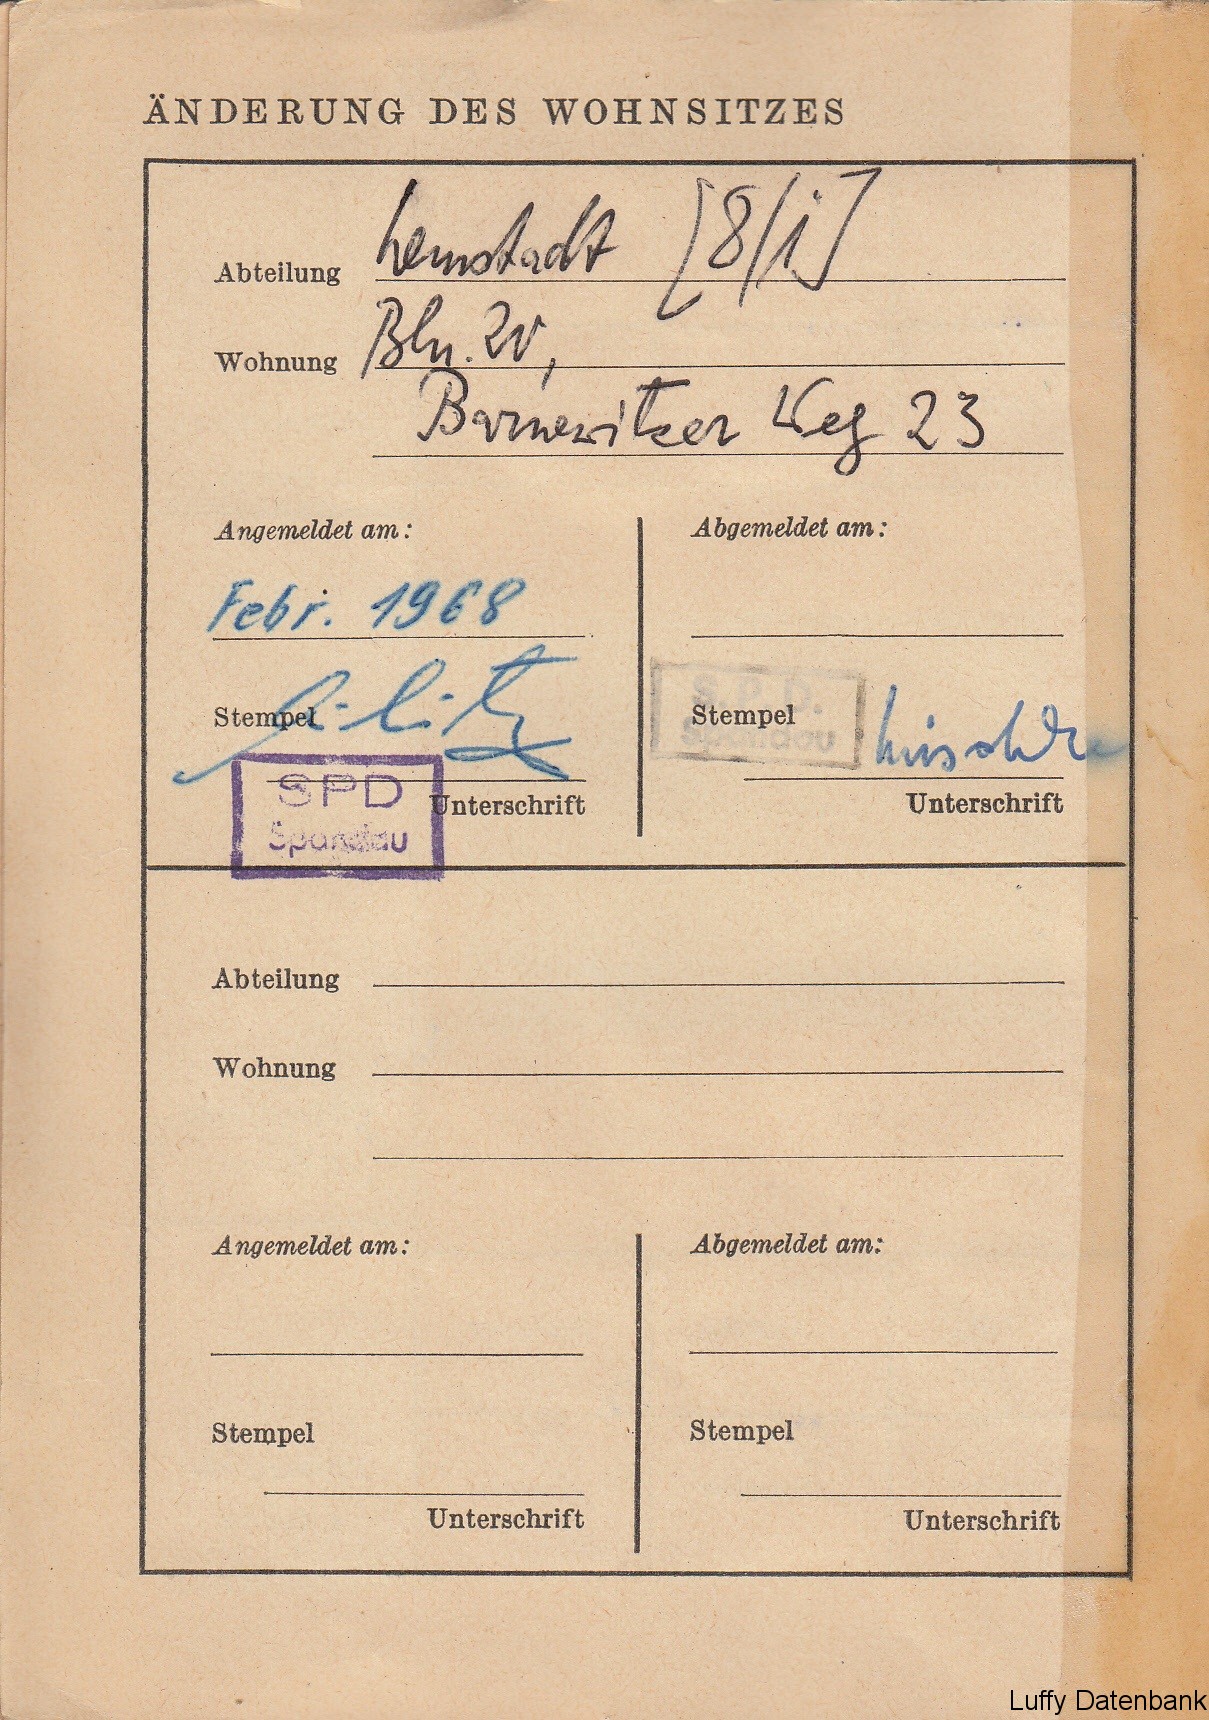 ÄNDERUNG DES WOHNSITZES
Abteilung [8/I]
Wohnung Bln. 20,
Barnewitzer Weg 23
Angemeldet am:
Febr. 1968
Stempel
SPD
Spandau
Unterschrift
Abgemeldet am:
S.P.D.
Spandau
Stempel
Unterschrift
Abteilung
Wohnung
Angemeldet am:
Stempel
Unterschrift
Abgemeldet am:
Stempel
Unterschrift
Luffy Datenbank